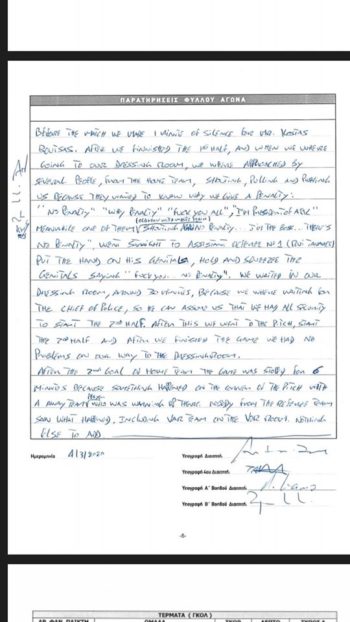 ΠΑΡΑΤΗΡΗΣΕΙΣ ΦΥΛΛΟΥ ΑΓΩΝΑ
BEFORE THE MATCH WE MAKE 1 MINUTE OF SILENCE FOR MR. KOSTAS
AFTER WE FINISHED THE 1st HALF, AND WHEN WE WHERE
GOING TO OUR DRESSING ROOM, WE WHERE APPROACHED BY
SEVERAL PEOPLE, FROM THE HOME TEAM, SHOUTING, PULLING AND PUSHING
US BECAUSE THEY WANTED TO KNOW WHY WE GIVE A PENALTY:
"NO PENALTY" "WHY PENALTY" "FUCK YOU ALL",
MEANWHILE ONE OF THEM SHOUTING NO PENALTY. I'M THE BOSS. THERE'S
NO PENALTY", WENT STRAIGHT TO ASSISTANT REFEREE Nº1
PUT THE HAND ON HIS GENITALS, HOLD AND SQUEEZE THE
GENITALS SAYING "FUCK YOU. NO PENALTY". WE WAITED IN OUR
DRESSING ROOM, AROUND 30 MINUTES, BECAUSE WE WHERE WAITING FOR
THE CHIEF OF POLICE, SO HE CAN ASSUME US THAT WE HAD ALL SECURITY
TO START THE 2nd HALF. AFTER THIS WE WENT TO THE PITCH, START
THE 2nd HALF AND AFTER WE FINISHED THE GAME WE HAD NO
PROBLEMS ON OUR WAY TO THE DRESSING ROOM.
AFTER THE 2nd GOAL OF HOME TEAM THE GAME WAS STOPED FOR 6
MINUTES BECAUSE SOMETHING HAPPENED ON THE CORNER OF THE PITCH WITH
A AWAY TEAM PLAYER WHO WAS WARMING UP THERE. NOBODY FROM THE REFEREE TEAM
SAW WHAT HAPPENED, INCLUDING VAR TEAM ON THE VOR ROOM. NOTHING
ELSE TO ADD
Ημερομηνία 4/3/2020
Υπογραφή Διαιτητή
Υπογραφή 4ου Διαιτητή
Υπογραφή Α' Βοηθού Διαιτητή
Υπογραφή Β' Βοηθού Διαιτητή
-6-
ΤΕΡΜΑΤΑ (ΓΚΟΛ)